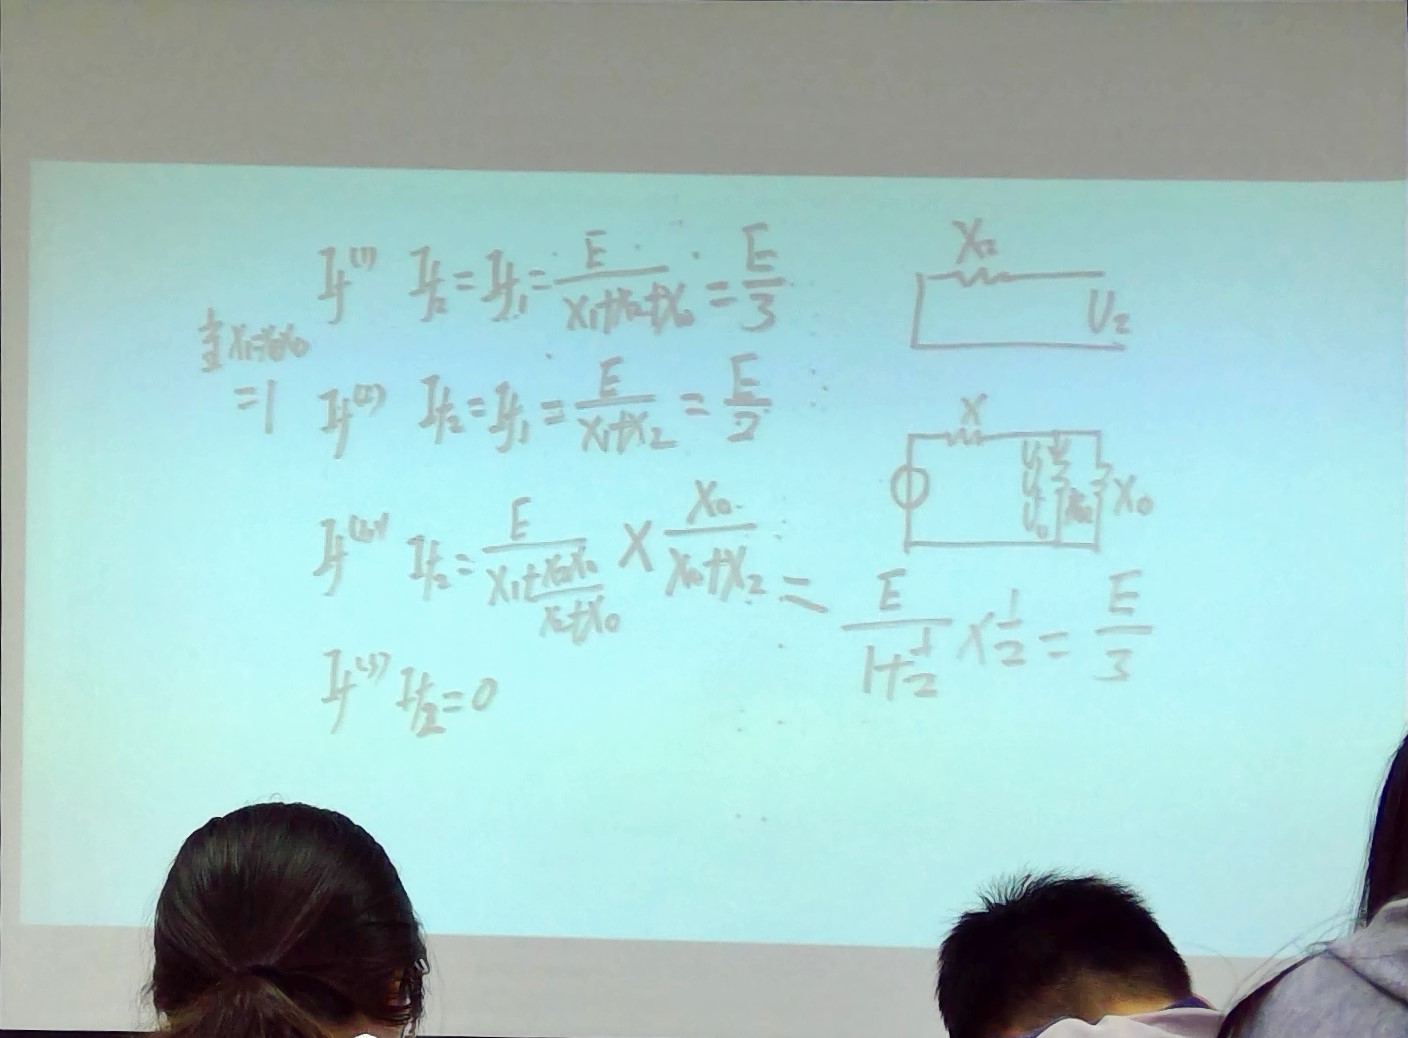 I_f^(1) I_f2 = I_f1 = E/(X1+X2+X0) = E/3
=1
I_f^(2) I_f2 = I_f1 = E/(X1+X2) = E/2
I_f^(1,1) I_f2 = E/(X1+X2X0/(X2+X0)) × X0/(X0+X2) = E/(1+1/2) × 1/2 = E/3
I_f^(3) I_f2 = 0
X2
U2
X
X0